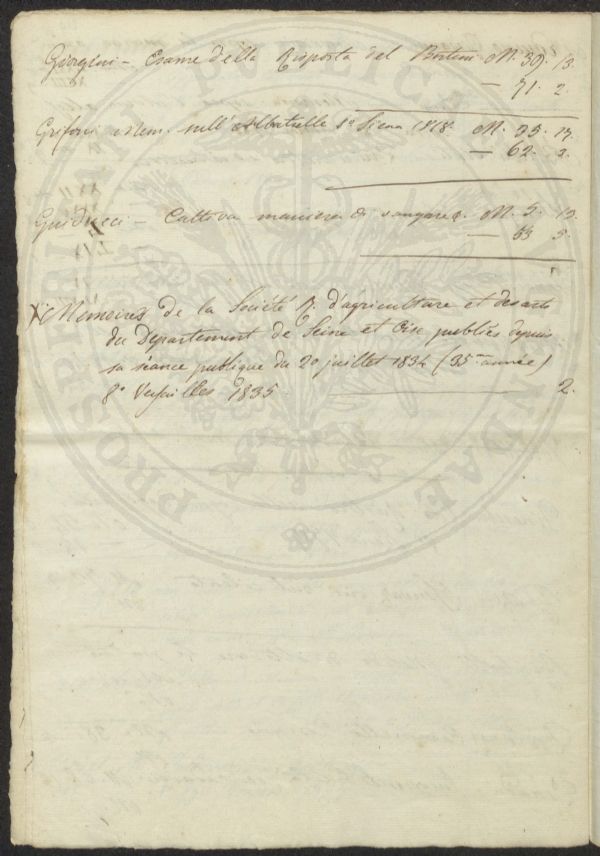 Giorgini – Esame della Risposta del Bertini M. 39. 13.
— 71. 2.
Grifoni Mem. sull' 8° Siena 1818. M. 13.
— 62. 3.
Guiducci – Cattiva maniera di M. 5. 13
— 63 3.
Memoires de la Société R. d'agriculture et des arts
du Departement de Seine et Oise publiés depuis
sa séance publique du 20 juillet 1834 (35me année)
8° Versailles 1835 — 2.
PUBLICAE